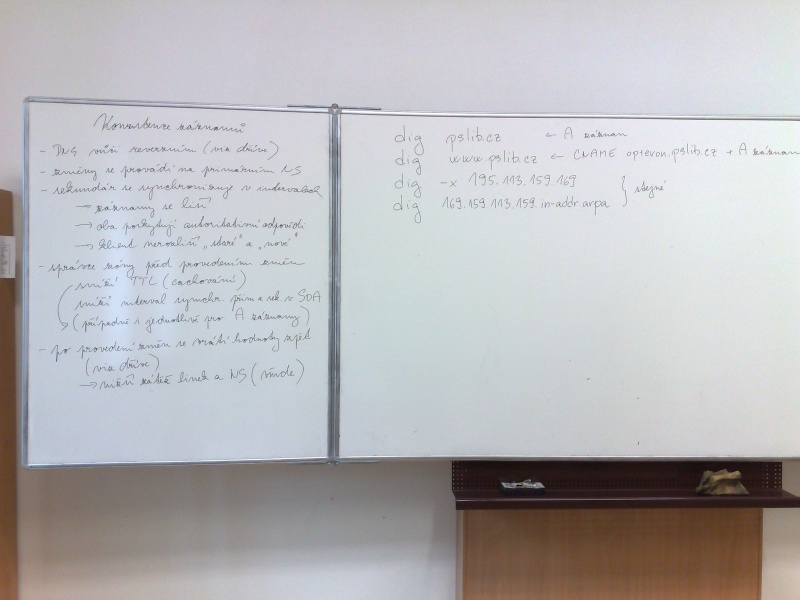 Konzistence záznamů
- DNS vůči reverzním (viz dříve)
- změny se provádí na primárním NS
- sekundár se synchronizuje v intervalech
→ záznamy se liší
→ oba poskytují autoritativní odpovědi
→ klient nerozliší „staré" a „nové"
- správce zóny před provedením změn
sníží TTL (cachování)
sníží interval synchr. prim a sek v SOA
(případně i jednotlivě pro A záznamy)
- po provedení změn se vrátí hodnoty zpět
(viz dříve)
→ nižší zátěž linek a NS (všude)
dig pslib.cz ← A záznam
dig www.pslib.cz ← CNAME opteron.pslib.cz + A záznam
dig -x 195.113.159.169
dig 169.159.113.159.in-addr.arpa } stejné